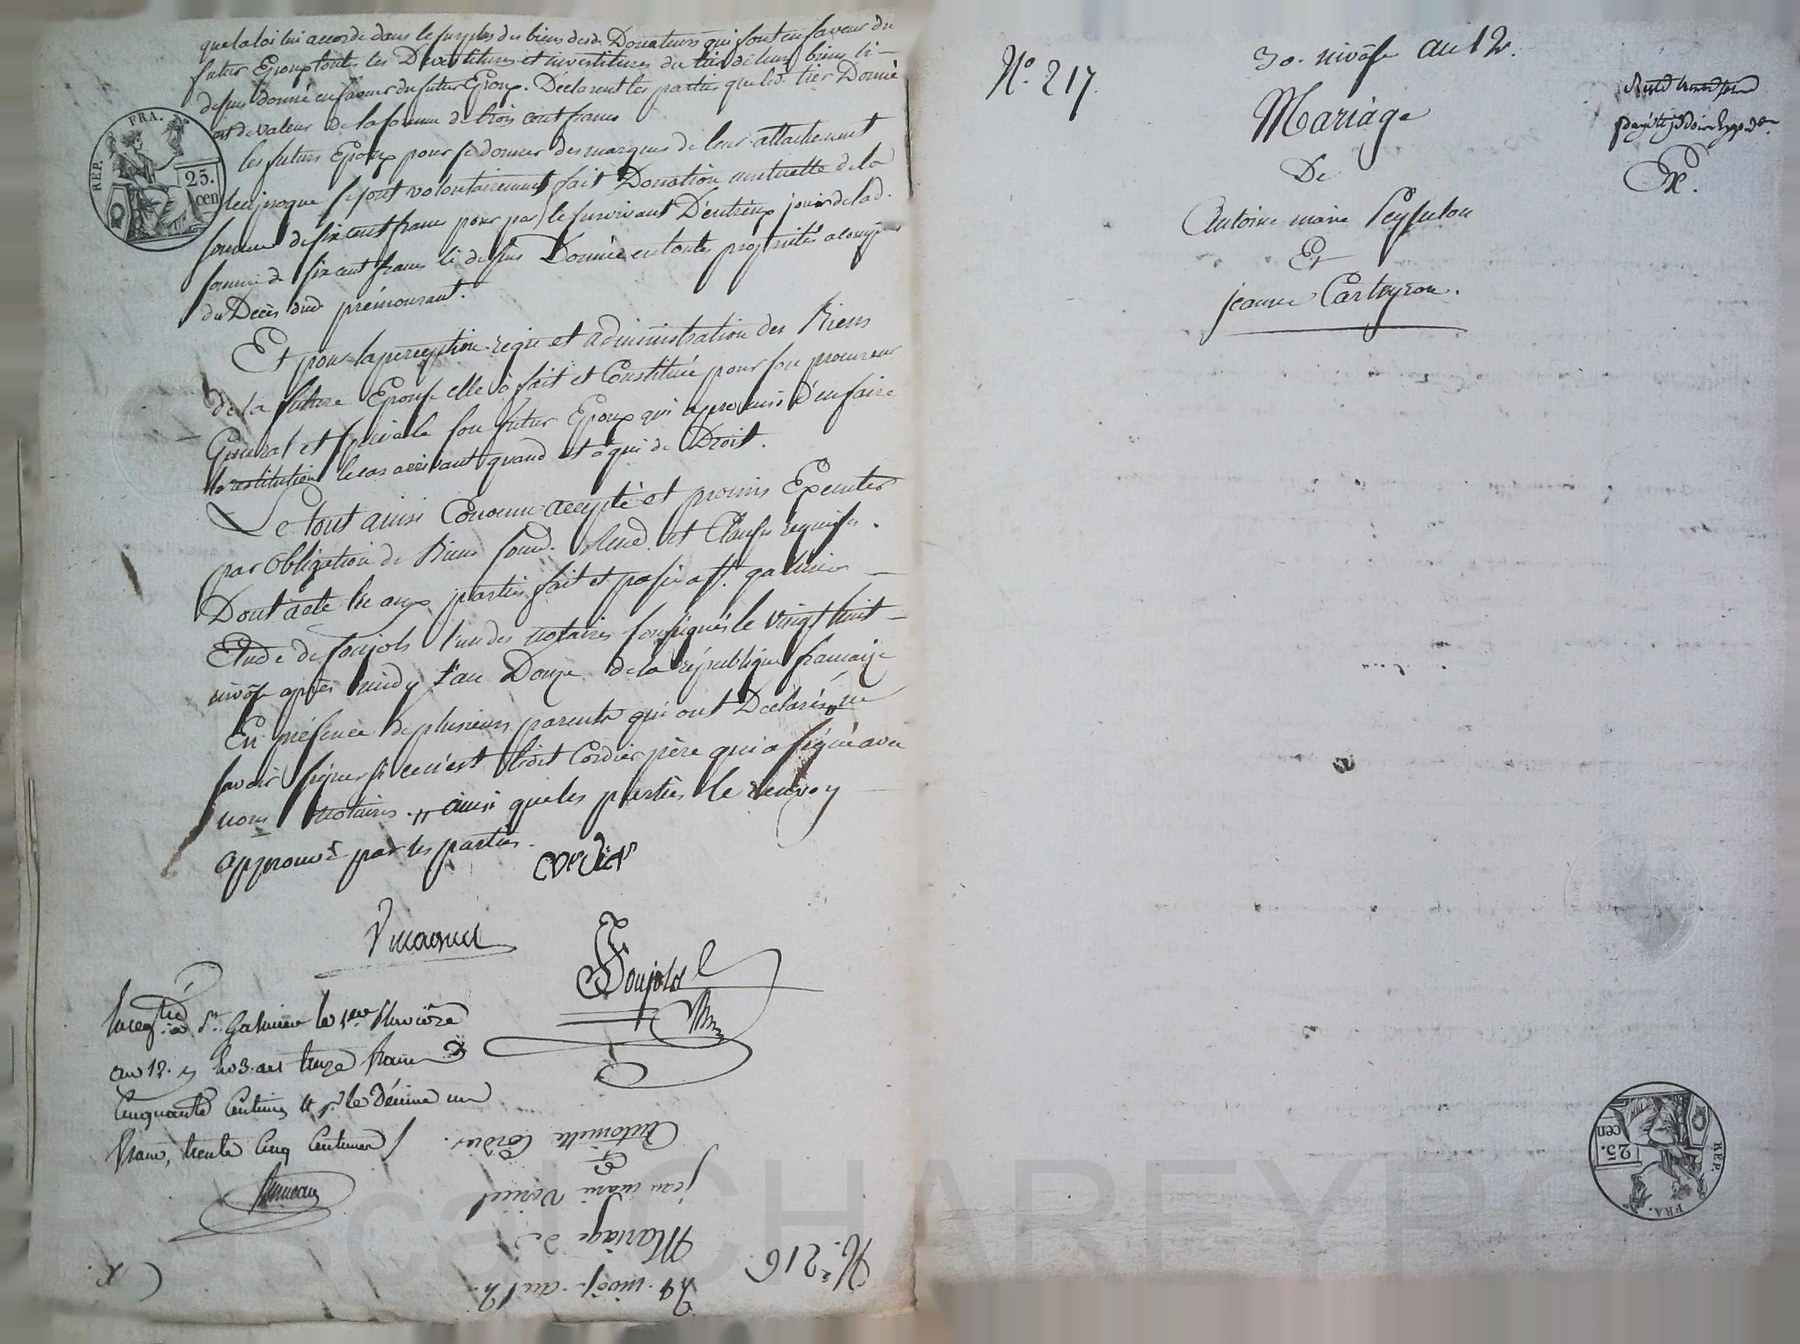 que la loi lui accorde dans le surplus des biens desd. Donateurs qui font en faveur du
futur Epoux toutes les Devestitures et investitures du tier de leurs biens ci-
dessus donné en faveur du futur Epoux. Déclarent les parties que led. tier Donné
est de valeur de la somme de trois cent francs
les futurs Epoux pour se donner des marques de leur attachement
reciproque se sont volontairement fait Donation mutuelle de la
somme de six cent francs pour par le survivant D'entreux jouir de lad.
somme de six cent francs ci dessus Donnée en toutes propriétés a compter
du Decès dud prémourant.
Et pour la perception regie et administration des Biens
de la future Epouse elle a fait et Constitué pour son procureur
General et special son futur Epoux qui a promis D'en faire
la restitution le cas arrivant quand et a qui de Droit.
Le tout ainsi Convenu accepté et promis Executer
par obligation de Biens soum. Rend. et Clauses requises.
Dont acte lu aux parties fait et passé a St. galmier
Etude de soujols l'un des notaires soussignés le vingt huit
nivose après midy l'an Douze de la république francaize
En présence de plusieurs parents qui ont Déclarés ne
savoir signer si ce n'est ledit Cordier père qui a signé avec
nous notaires. ainsi que les parties le renvoy
approuvé par les parties.
cordier
Soujols
Enreg.tré a St. Galmier le 1er pluviôse
an 12. treize francs
Cinquante Centimes & pr. le Décime un
franc, trente Cinq Centimes
REP. FRA.
25.
cen
N.° 216
28. nivôse an 12.
Mariage de
jean marie
Et
Antoinette Cordier.
N.° 217.
30. nivôse an 12.
Mariage
De
Antoine marie Peysselon
Et
jeanne Carteyron.
REP. FRA.
25.
cen
cal CHAREYRO